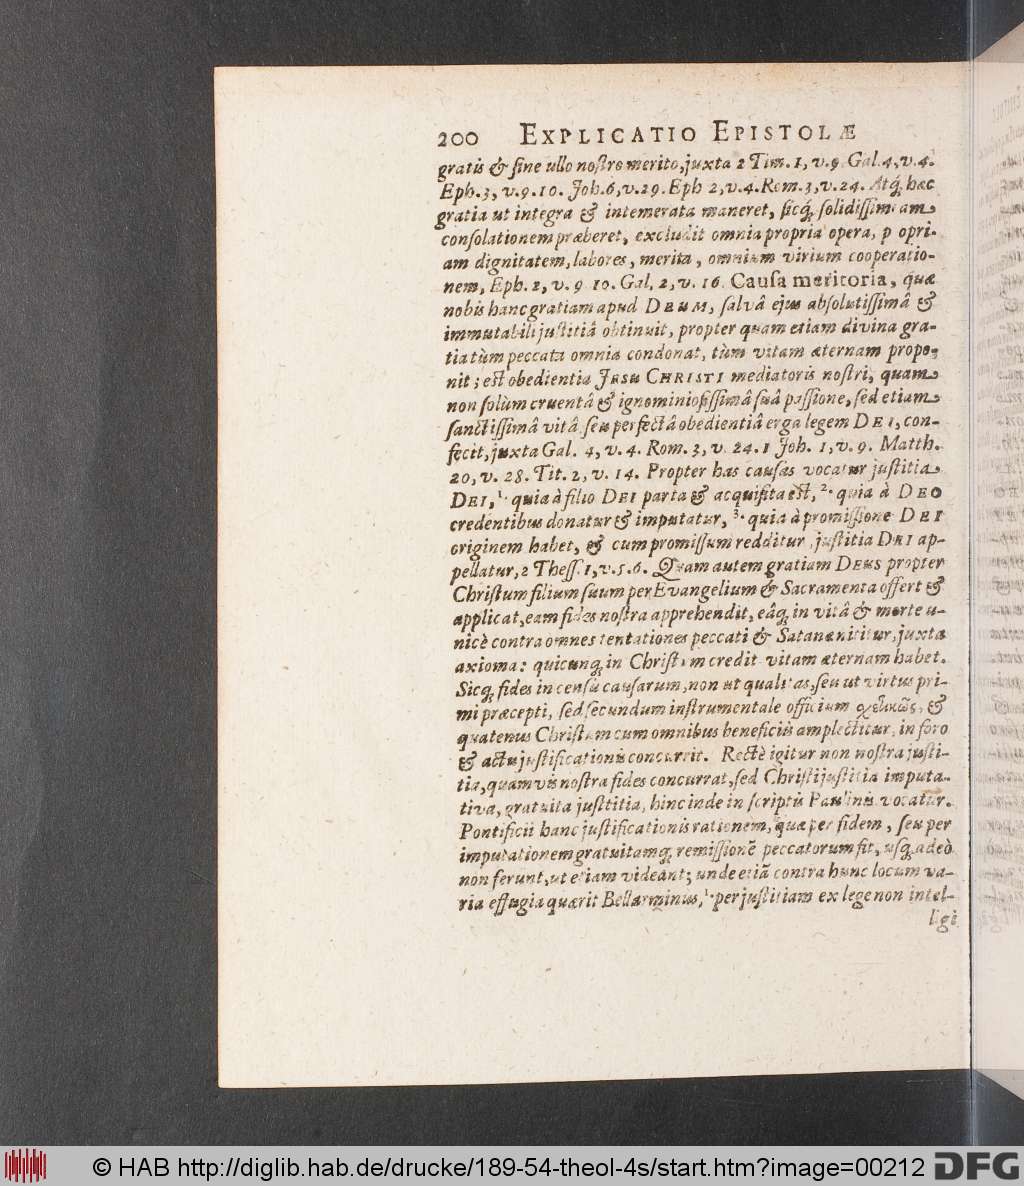 200 EXPLICATIO EPISTOLÆ
gratis & sine ullo nostro merito, juxta 2 Tim. 1, v. 9. Gal. 4, v. 4.
Eph. 3, v. 9. 10. Joh. 6, v. 29. Eph 2, v. 4. Rom. 3, v. 24. Atq; hæc
gratia ut integra & intemerata maneret, sicq; solidissimam
consolationem præberet, excludit omnia propria opera, p opri-
am dignitatem, labores, merita, omnium virium cooperatio-
nem, Eph. 2, v. 9 10. Gal. 2, v. 16. Causa meritoria, quæ
nobis hanc gratiam apud DEUM, salvâ ejus absolutissimâ &
immutabili justitiâ obtinuit, propter quam etiam divina gra-
tia tùm peccata omnia condonat, tùm vitam æternam propo-
nit; est obedientia JESU CHRISTI mediatoris nostri, quam
non solùm cruentâ & ignominiosissimâ suâ passione, sed etiam
sanctissimâ vitâ, seu perfectâ obedientiâ erga legem DEI, con-
fecit, juxta Gal. 4, v. 4. Rom. 3, v. 24. 1 Joh. 1, v. 9. Matth.
20, v. 28. Tit. 2, v. 14. Propter has causas vocatur justitia
DEI, 1. quia à filio DEI parta & acquisita est, 2. quia à DEO
credentibus donatur & imputatur, 3. quia à promissione DEI
originem habet, & cum promissum redditur, justitia DEI ap-
pellatur, 2 Thess. 1, v. 5. 6. Quam autem gratiam DEUS propter
Christum filium suum per Evangelium & Sacramenta offert &
applicat, eam fides nostra apprehendit, eâq; in vitâ & morte u-
nicè contra omnes tentationes peccati & Satanæ nititur, juxta
axioma: quicunq; in Christum credit vitam æternam habet.
Sicq; fides in censu causarum, non ut qualitas, seu ut virtus pri-
mi præcepti, sed secundum instrumentale officium χετικῶς, &
quatenus Christum cum omnibus beneficiis amplectitur, in foro
& actu justificationis concurrit. Rectè igitur non nostra justi-
tia, quamvis nostra fides concurrat, sed Christi justitia imputa-
tiva, gratuita justitia, hinc inde in scriptis Paulinis vocatur.
Pontificii hanc justificationis rationem, quæ per fidem, seu per
imputationem gratuitamq; remissionẽ peccatorum fit, usq; adeò
non ferunt, ut etiam videant; unde etiã contra hunc locum va-
ria effugia quærit Bellarminus, 1. per justitiam ex lege non intel-
ligè
© HAB http://diglib.hab.de/drucke/189-54-theol-4s/start.htm?image=00212
DFG